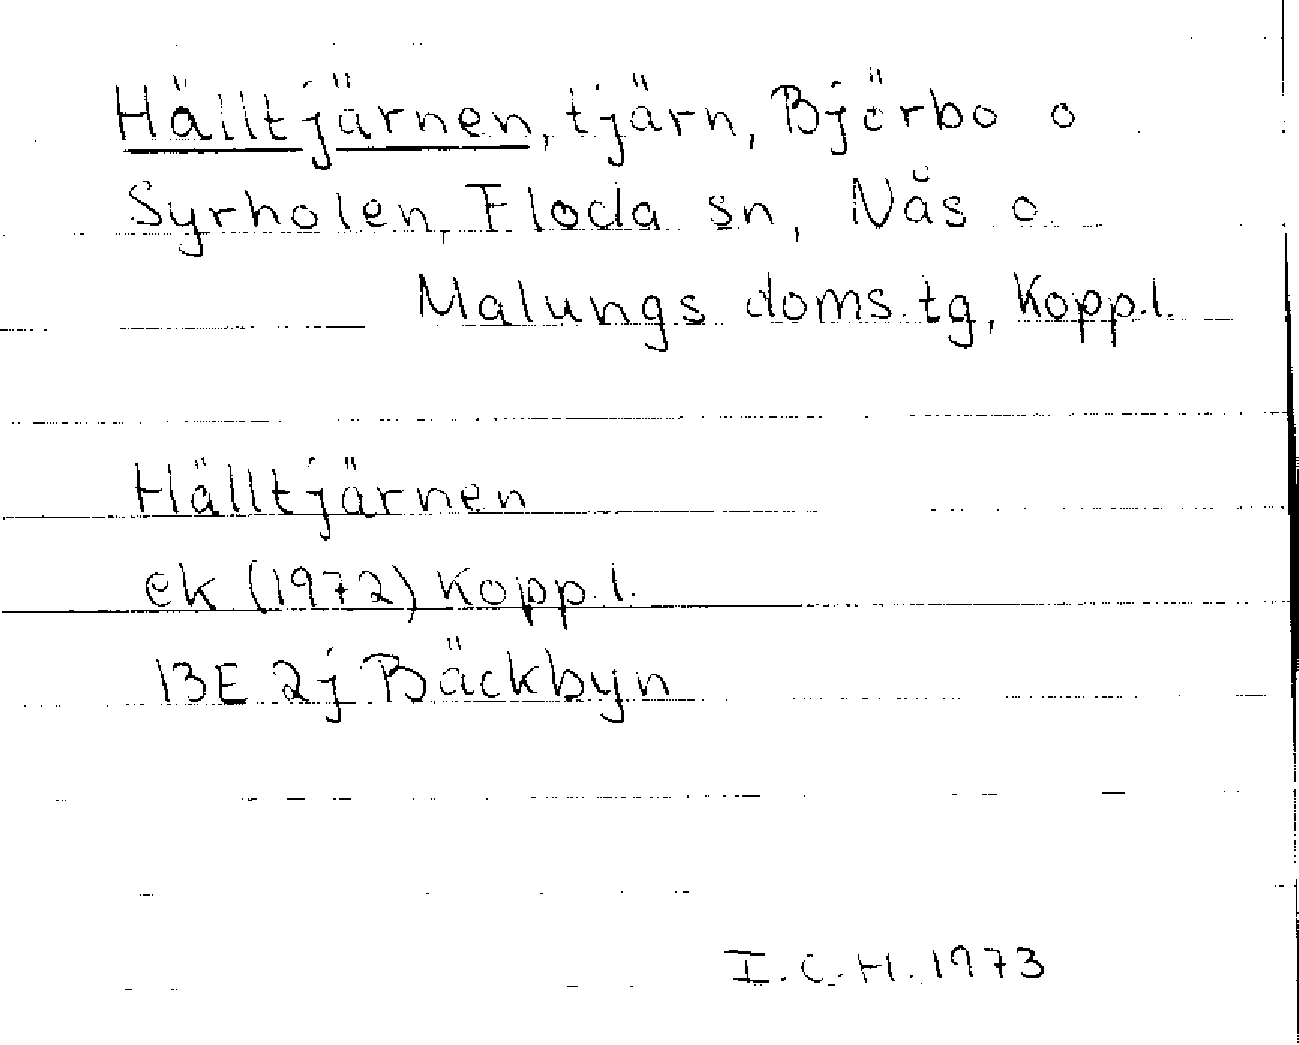 Hälltjärnen, tjärn, Björbo o
Syrholen, Floda sn, Nås o
Malungs doms.tg, Kopp.l.
Hälltjärnen
ek (1972) Kopp.l.
13E 2j Bäckbyn
I.C.H. 1973